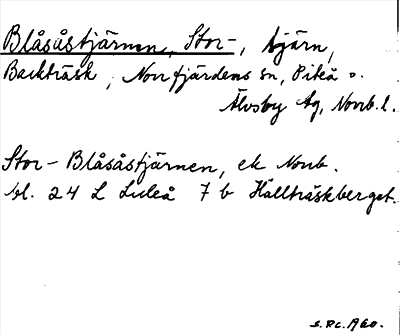 Blåsåstjärnen, Stor-, tjärn,
Backträsk, Norrfjärdens sn, Piteå o.
Älvsby tg, Norrb. l.
Stor-Blåsåstjärnen, ek Norrb.
bl. 24 L Luleå 7 b Hällträskberget.